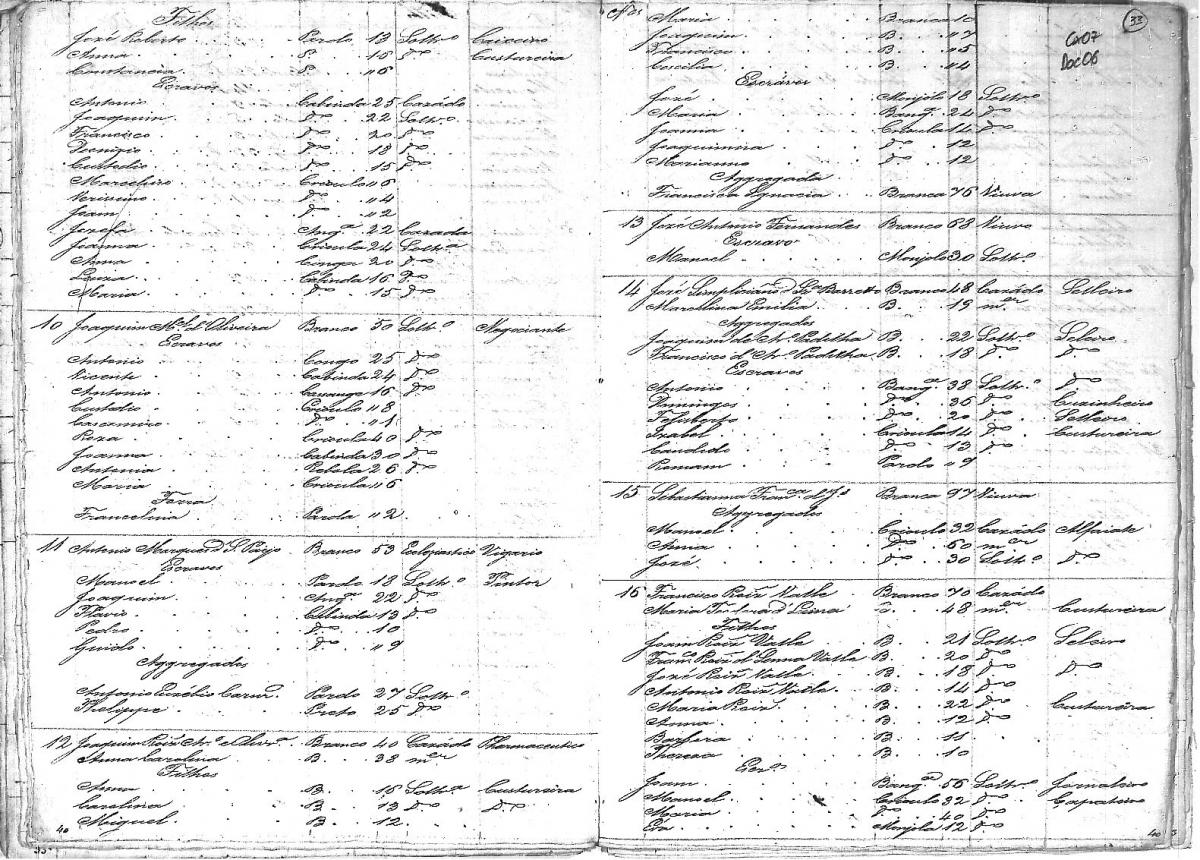 Filhos
José Roberto Pardo 13 Solthº Caixeiro
Anna P. 15 Dº Custureira
Constancia P. "6
Escravos
Antonio Cabinda 25 Cazádo
Joaquim Dº 22 Solthº
Francisco Dº 20 Dº
Dionizio Dº 18 Dº
Custodio Dº 15 Dº
Marcelino Crioulo "6
Verissimo Dº "4
Joam Dº "2
Jozefa Angª 22 Cazada
Joanna Crioula 24 Solthª
Anna Conga 20 Dº
Luiza Cabinda 16 Dº
Maria Dº 15 Dº
10 Joaquim Mel d'Oliveira Branco 50 Solthº Negociante
Escravos
Antonio Congo 25 Dº
Vicente Cabinda 24 Dº
Antonio 16 Dº
Custodio Crioulo "8
Cascimiro Dº "1
Roza Crioula 40 Dº
Joanna Cabinda 30 Dº
Antonia Rebola 26 Dº
Maria Crioula "6
Forra
Francelina Parda "2
11 Antonio Marques d S. Branco 53 Ecclesiastico Vigario
Escravos
Manoel Pardo 18 Solthº Pintor
Joaquim Angª 22 Dº
Flavio Cabinda 13 Dº
Pedro Dº 10
Guido Dº "9
Aggregados
Antonio Pardo 27 Solthº
Phelippe Preto 25 Dº
12 Joaquim Roiz Branco 40 Cazádo Pharmaceutico
Anna Carolina B. 38 mer
Filhos
Anna B. 15 Solthª Custureira
Carolina B. 13 Dº Dº
Miguel B. 12
40
Nos Maria Branca 10
Joaquim B. "7
Francisco B. "5
Cecilia B. "4
33
Cx07
Doc06
Escravos
José Monjolo 18 Solthº
Maria Bangª 24 Dº
Joanna Crioula 14 Dº
Joaquimina Dº 12
Marianno Dº 12
Aggregada
Francisca Ignacia Branca 76 Viuva
13 José Antonio Fernandes Branco 68 Viuvo
Escravo
Manoel Monjolo 30 Solthº
14 José Simpliciano d Sª Barretto Branco 48 Cazádo Selleiro
Marcellina Emilia B. 19 mer
Aggregados
Joaquim de Padilha B. 22 Solthº Seleiro
Francisco d' Padilha B. 18 Dº Dº
Escravos
Antonio Bangª 38 Solthº Dº
Domingos Dº 36 Dº Cuzinheiro
Felisberto Dº 20 Dº Selleiro
Izabel Crioula 14 Dº Custureira
Candido Dº 13 Dº
Romam Pardo "9
15 Sebastianna Francª d Js Branca 97 Viuva
Aggregados
Manoel Crioulo 32 Cazádo Alfaiate
Anna Dº 60 mer
José Dº 30 Solthº Dº
16 Francisco Roiz Valle Branco 70 Cazádo
Maria d Lima 48 mer Custureira
Filhos
Joam Roiz Valle B. 21 Solthº Seleiro
Francº Roiz Valle B. 20 Dº
José Roiz Valle B. 18 Dº Dº
Antonio Roiz Valle B. 14 Dº
Maria Roiz B. 22 Dº Custureira
Anna B. 12 Dº
Barbera B. 11
Thereza B. 10
Escºs
Joam Bangª 56 Solthº Jornaleiro
Manoel Crioulo 32 Dº Çapateiro
Maria Dº 40 Dº
Eva Monjola 12 Dº
40